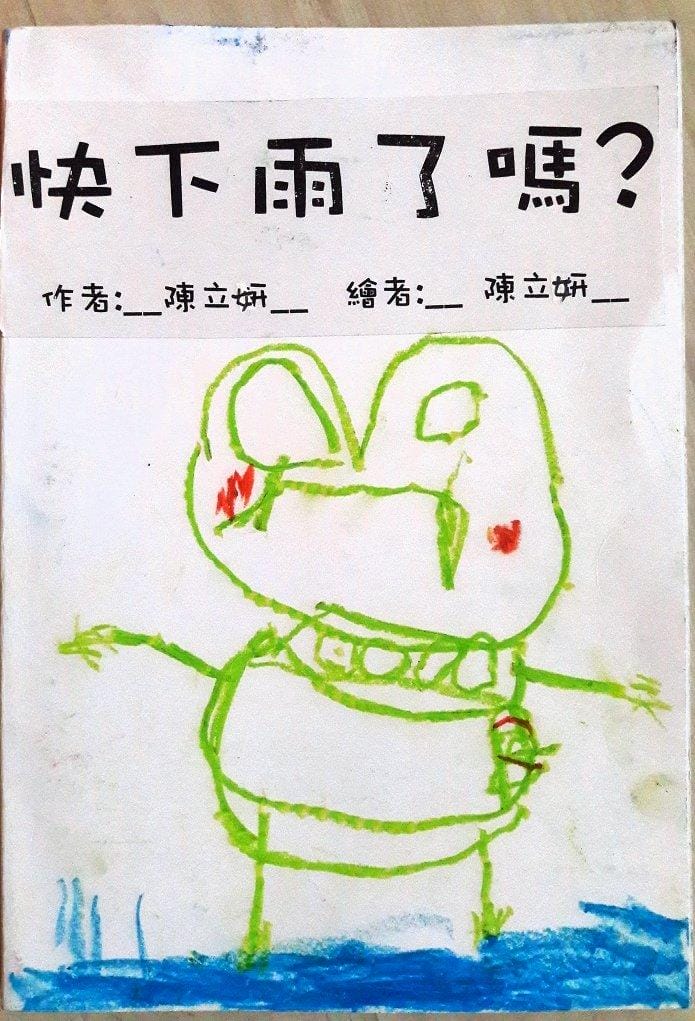 快下雨了嗎?
作者:__陳立妍__ 繪者:__ 陳立妍__